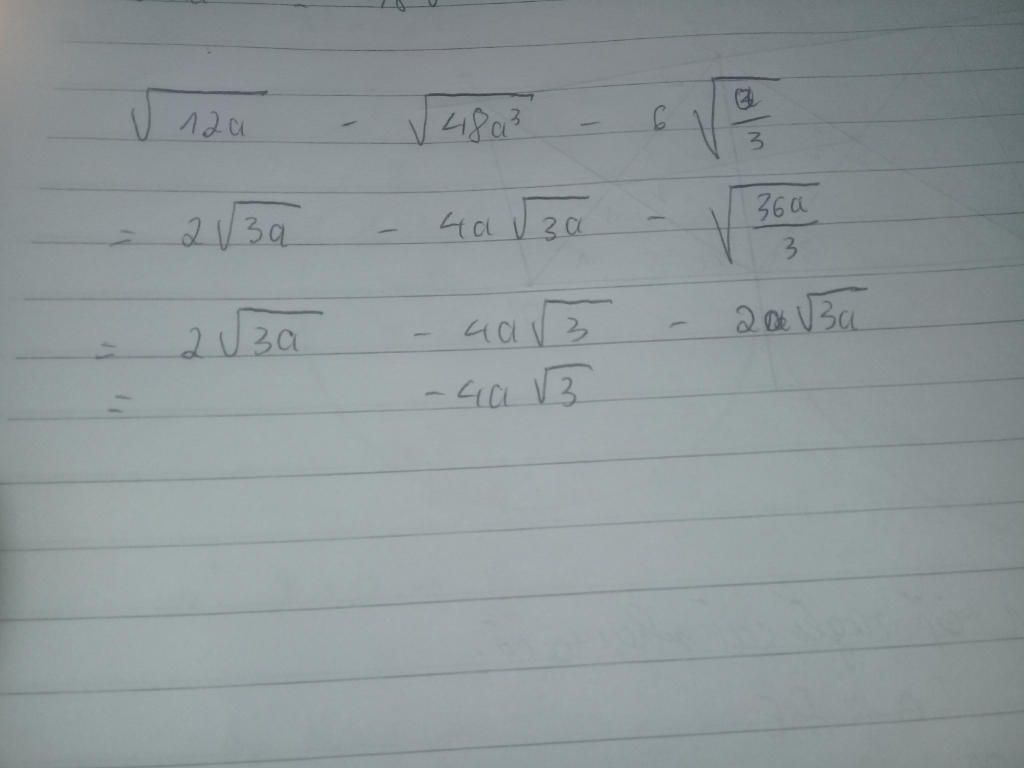 √12a - √48a³ - 6 √a/3
= 2√3a - 4a √3a - √36a/3
= 2√3a - 4a √3 - 2√3a
= - 4a √3